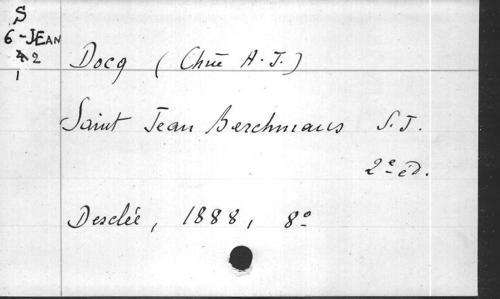 S
6-JEAN
42
1
Docq (Chne A. J.)
Saint Jean Berchmans S.J.
2e éd.
Desclée, 1888, 8°